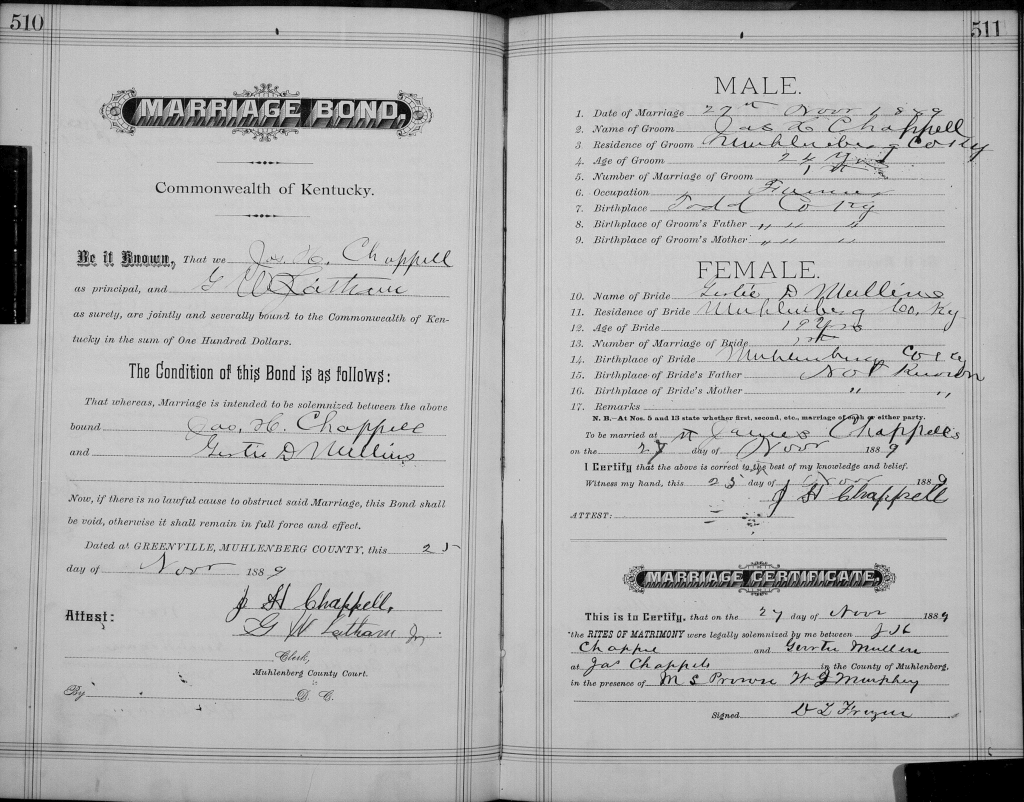 510
MARRIAGE BOND.
Commonwealth of Kentucky.
Be it Known, That we Jas. H. Chappell
as principal, and G W Latham
as surety, are jointly and severally bound to the Commonwealth of Ken-
tucky in the sum of One Hundred Dollars.
The Condition of this Bond is as follows:
That whereas, Marriage is intended to be solemnized between the above
bound Jas. H. Chappell
and Gertie D Mullins
Now, if there is no lawful cause to obstruct said Marriage, this Bond shall
be void, otherwise it shall remain in full force and effect.
Dated at GREENVILLE, MUHLENBERG COUNTY, this 25
day of Novr 1889
Attest: J H Chappell.
G W Latham Jr.
Clerk,
Muhlenberg County Court.
By D. C.
511
MALE.
1. Date of Marriage 27th Novr 1889
2. Name of Groom Jas H Chappell
3. Residence of Groom Muhlenberg Co Ky
4. Age of Groom 24 Yrs
5. Number of Marriage of Groom 1st
6. Occupation Farmer
7. Birthplace Todd Co Ky
8. Birthplace of Groom's Father " " "
9. Birthplace of Groom's Mother " " "
FEMALE.
10. Name of Bride Gertie D Mullins
11. Residence of Bride Muhlenberg Co. Ky
12. Age of Bride 19 Yrs
13. Number of Marriage of Bride 1st
14. Birthplace of Bride Muhlenberg Co Ky
15. Birthplace of Bride's Father Not Known
16. Birthplace of Bride's Mother " "
17. Remarks
N. B.—At Nos. 5 and 13 state whether first, second, etc., marriage of each or either party.
To be married at James Chappells
on the 27 day of Novr 1889
I Certify that the above is correct to the best of my knowledge and belief.
Witness my hand, this 25 day of Novr 1889
J H Chappell
ATTEST:
MARRIAGE CERTIFICATE.
This is to Certify, that on the 27 day of Novr 1889
the RITES OF MATRIMONY were legally solemnized by me between J H
Chappel and Gertie Mullin
at Jas Chappels in the County of Muhlenberg,
in the presence of M S Prowse W J Murphey
Signed D L Frazier